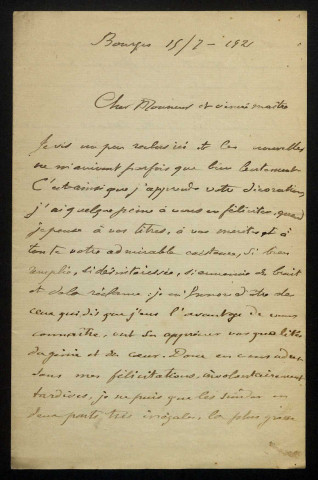 Bourges 15/7 - 192
Cher Monsieur et vénéré maître
Je vis un peu reclus ici et les nouvelles
ne m'arrivent parfois que bien lentement
C'est ainsi que j'apprends votre décoration,
j'ai quelque peine à vous en féliciter, quand
je pense à vos titres, à vos mérites, et à
toute votre admirable existence, si bien
emplie, si désintéressée, si ennemie du bruit
et de la réclame: je m'honore d'être de
ceux qui, dès que j'eus l'avantage de vous
connaître, ont su apprécier vos qualités
de génie et de cœur. Donc en vous adres
sant mes félicitations, involontairement
tardives, je ne puis que les scinder en
deux parts, très inégales, la plus grosse